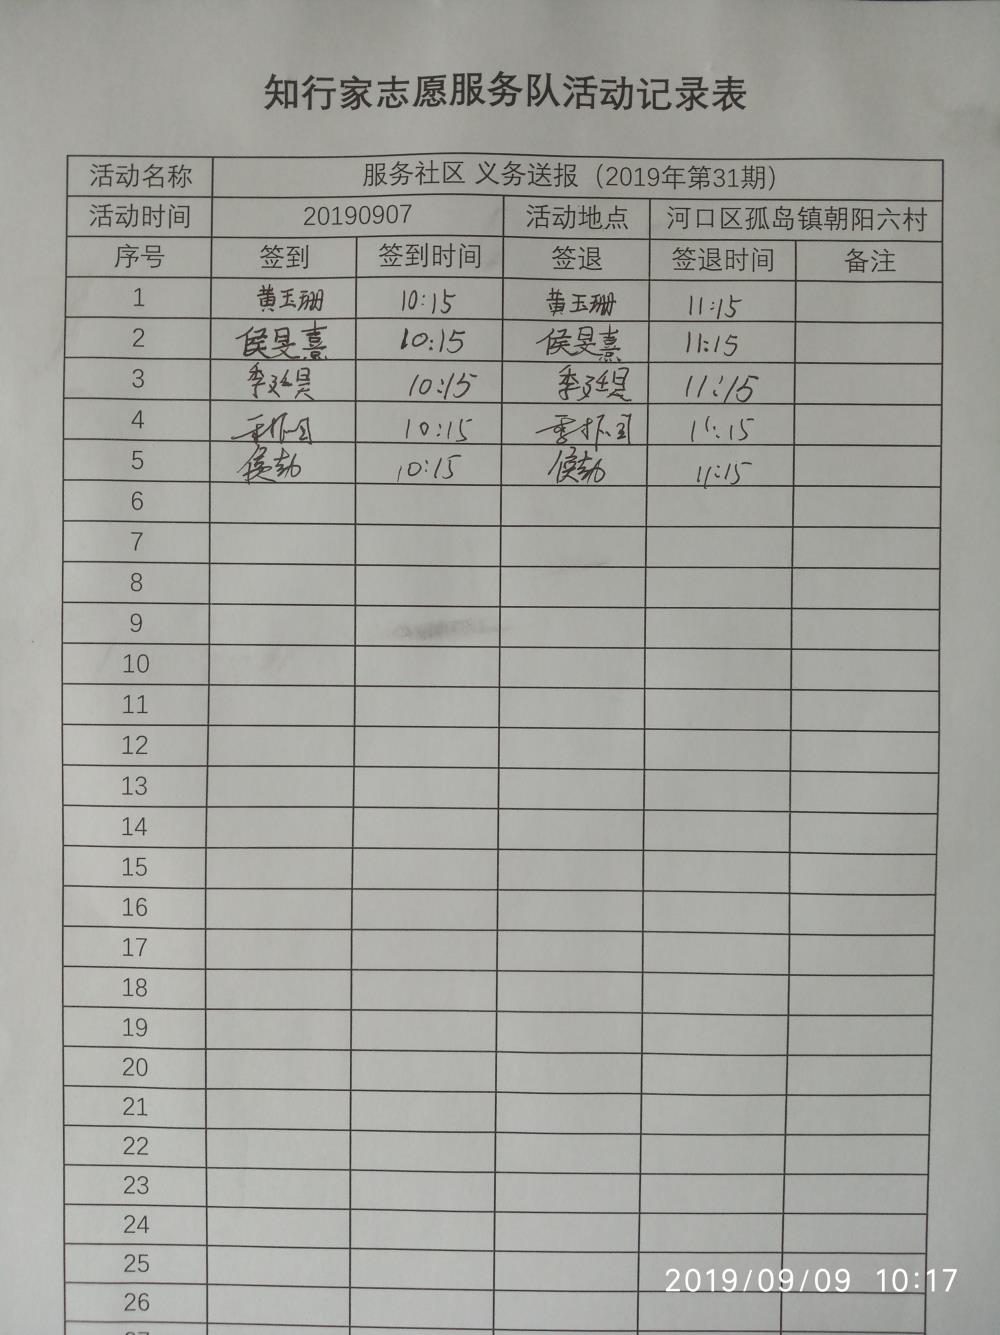 知行家志愿服务队活动记录表
活动名称 服务社区 义务送报（2019年第31期）
活动时间 20190907 活动地点 河口区孤岛镇朝阳六村
序号 签到 签到时间 签退 签退时间 备注
1 黄玉珊 10:15 黄玉珊 11:15
2 侯旻熹 10:15 侯旻熹 11:15
3 10:15 11:15
4 10:15 11:15
5 10:15 11:15
6
7
8
9
10
11
12
13
14
15
16
17
18
19
20
21
22
23
24
25
26
2019/09/09 10:17